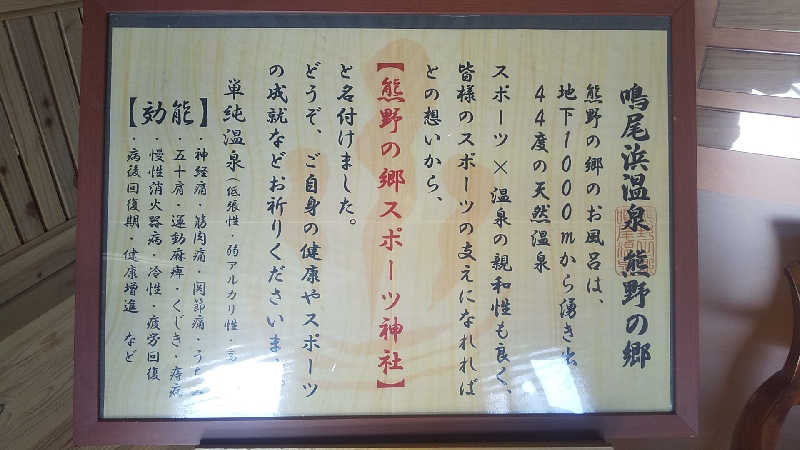 鳴尾浜温泉 熊野の郷
熊野の郷のお風呂は、
地下1000mから湧き出
44度の天然温泉
スポーツ×温泉の親和性も良く、
皆様のスポーツの支えになれれば
との想いから、
【熊野の郷スポーツ神社】
と名付けました。
どうぞ、ご自身の健康やスポーツ
の成就などお祈りくださいま
単純温泉(低張性・弱アルカリ性・高
【効能】
・神経痛・筋肉痛・関節痛・うちみ
・五十肩・運動麻痺・くじき・痔疾
・慢性消火器病・冷性・疲労回復
・病後回復期・健康増進 など